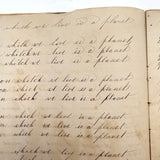 which we live is a planet
which we live is a planet
which we live is a planet
on which we live is a planet
on which we live is a planet
on which we live is a planet
on which we live is a planet
which we live is a planet
which we live is a planet